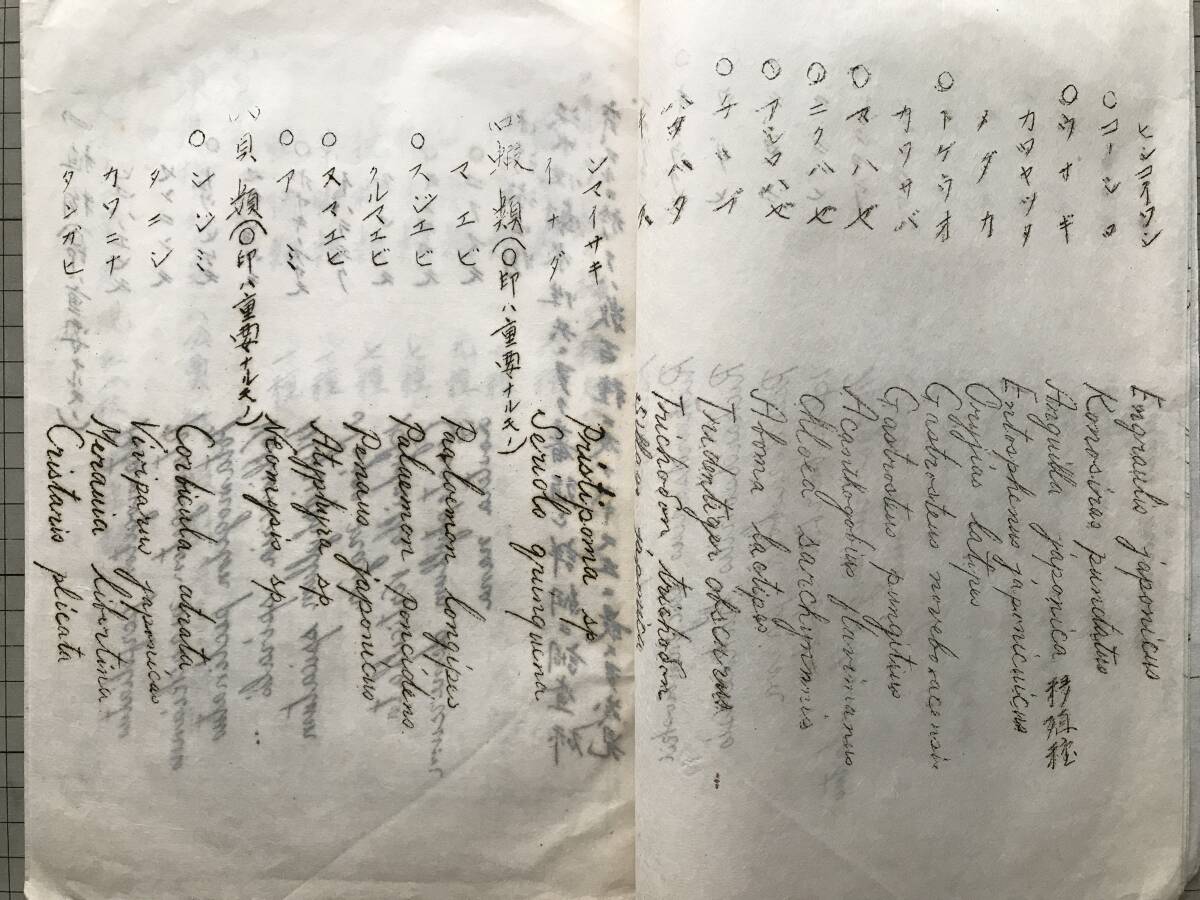 Engraulis japonicus
○コノシロ Konosirus punctatus
○ウナギ Anguilla japonica 移殖種
カワヤツメ Entosphenus japonicus
メダカ Oryjias latipes
○トゲウオ Gastrosteus
カワサバ Gastrosteus pungitius
○マハゼ Acanthogobius flavimanus
○ニクハゼ Chloea sarchynnis
○アシロハゼ Aboma lactipes
○チチブ Tridentiger obscurus
ハタハタ Trichodon trichodon
シマイサキ Pristipoma sp
イナダ Seriola
ロ 蝦類(○印ハ重要ナルモノ)
マエビ longipis
○スジエビ Palaemon
クルマエビ Penaus japonicus
○ヌマエビ Atyphyra sp
○アミ Neomysis sp
ハ 貝類(○印ハ重要ナルモノ)
○シジミ Corbicula atrata
タニシ Viviparus japonicus
カワニナ libertina
カラスガヒ Cristaria plicata